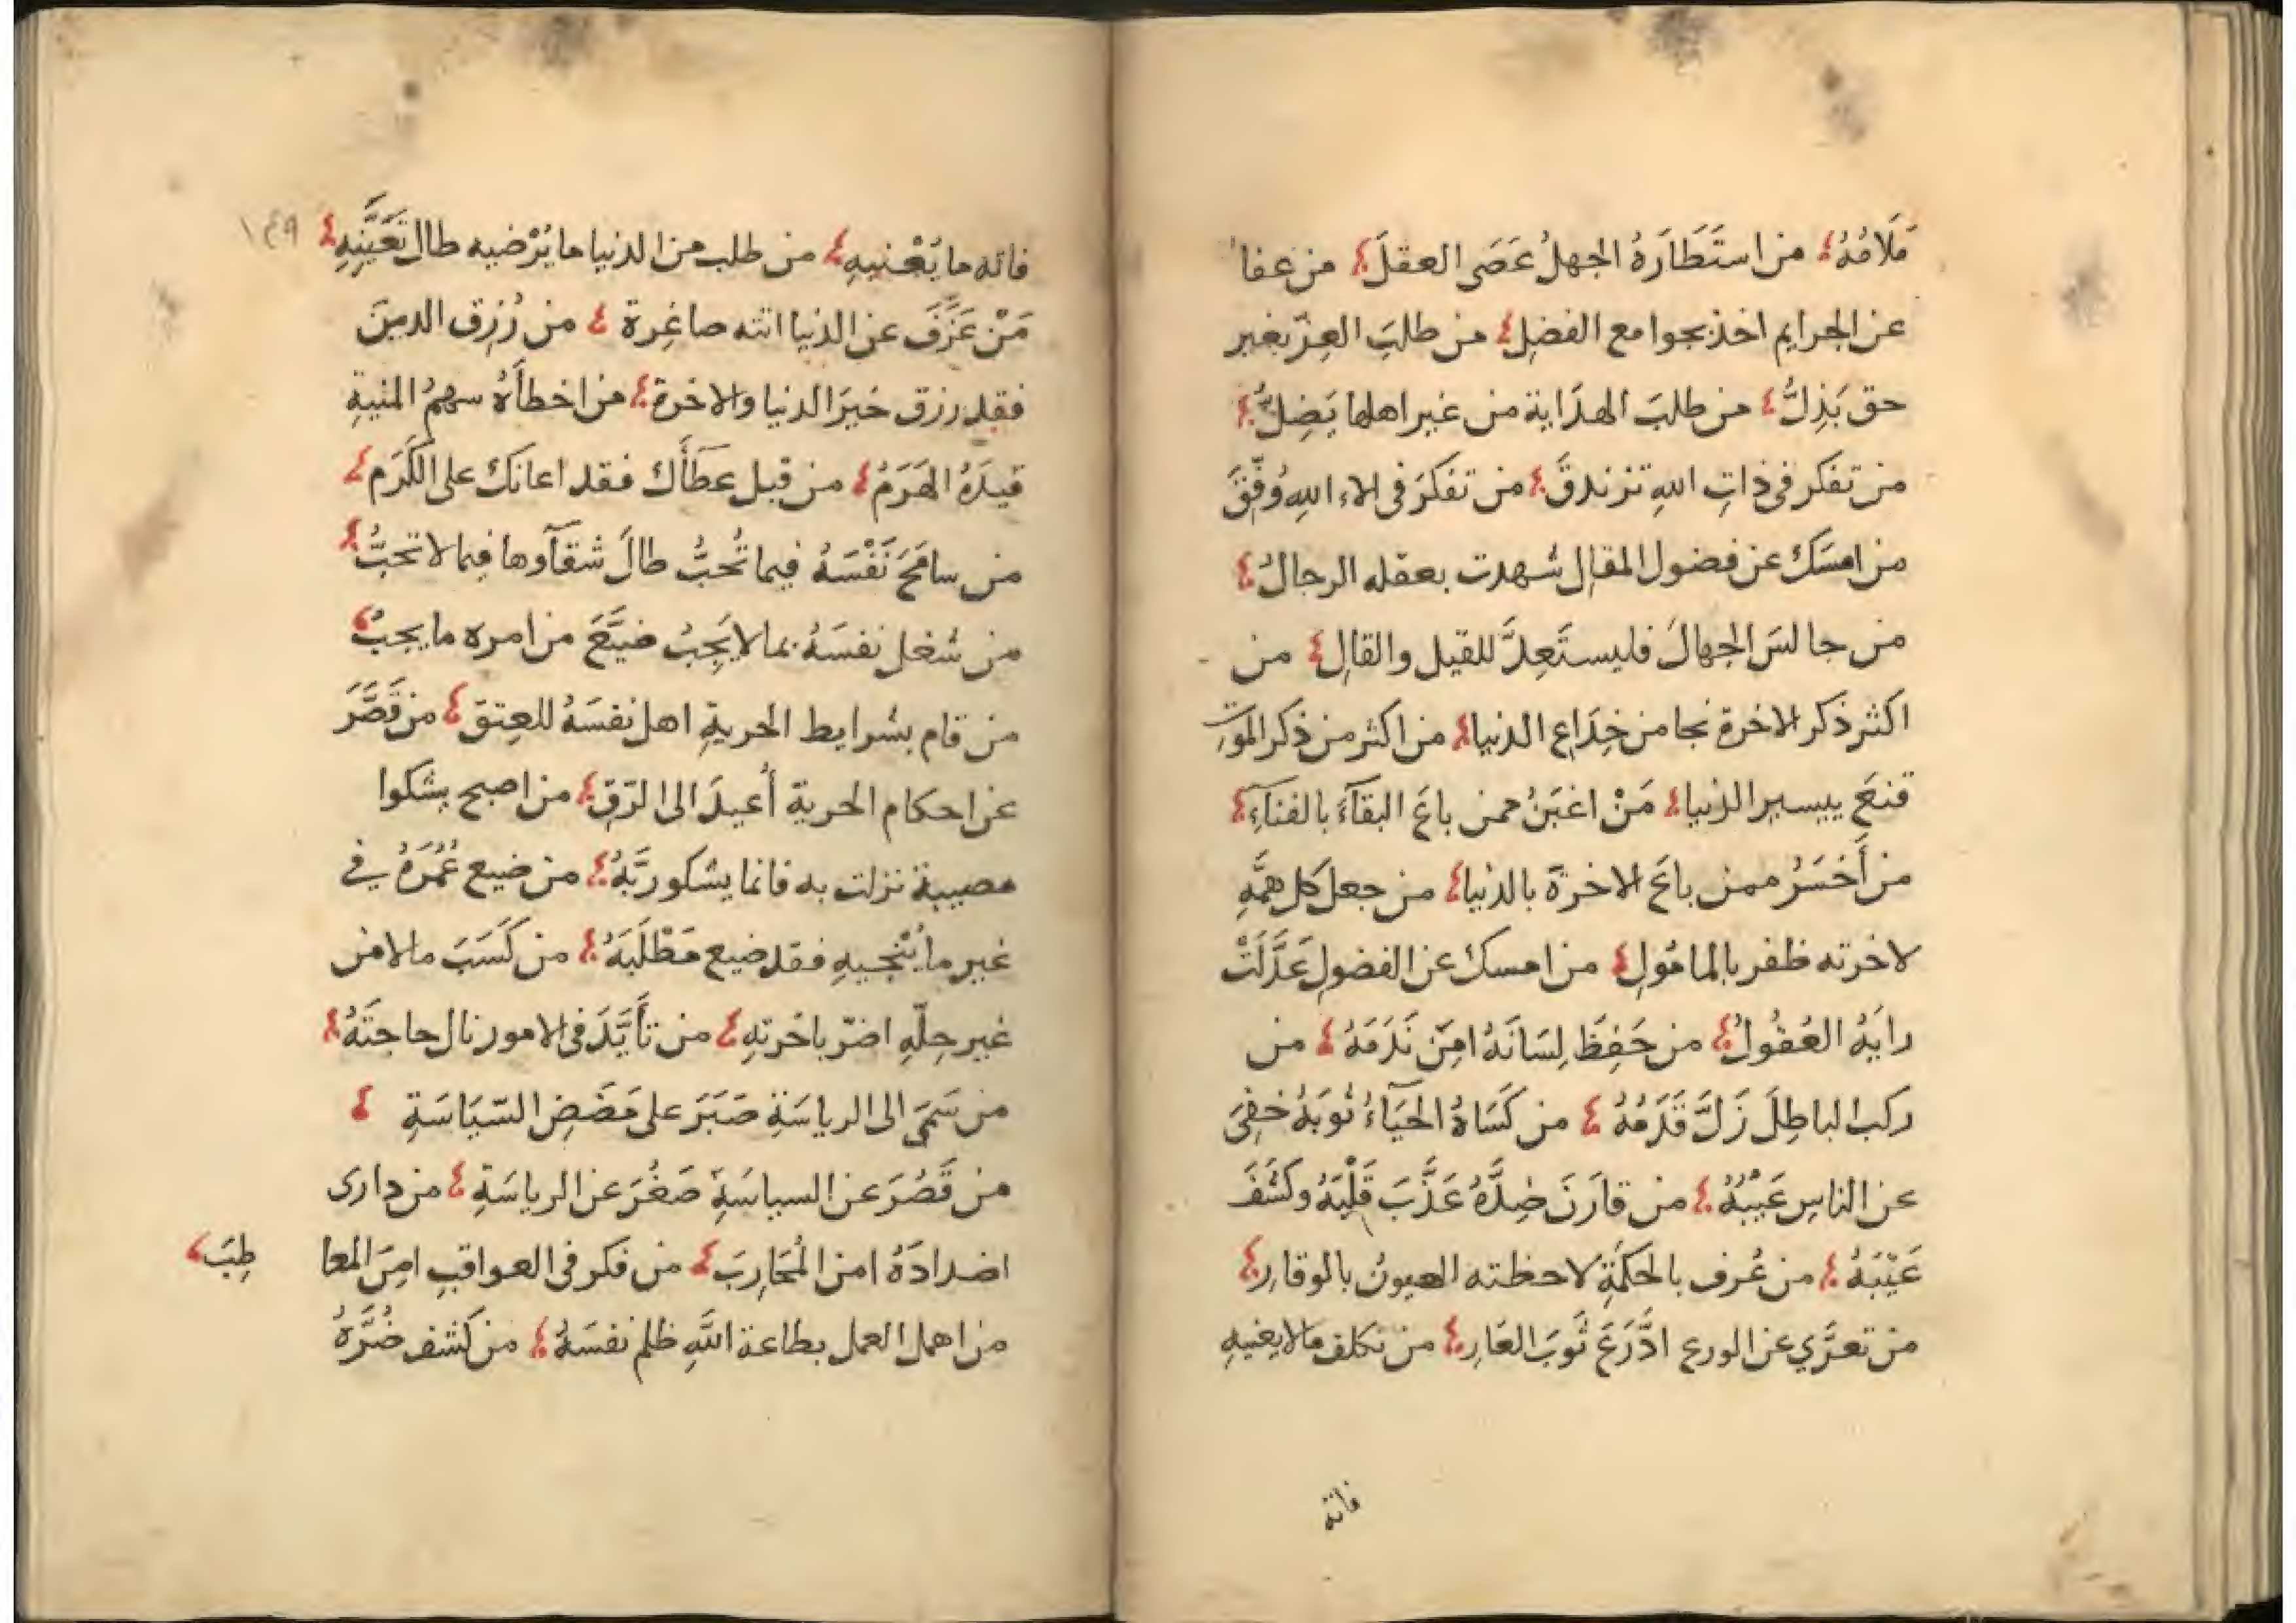 مَلَامُهُ من استَطَارَهُ الجهلُ عَصَى العقلَ من عفا
عن الجرايم اخذ بجوامع الفضلِ من طلبَ العِزّ بغير
حق يَذِلُّ من طلبَ الهدَاية من غير اهلها يَضِلُّ
من تفكر فى ذاتِ اللهِ تزندقَ من تفكرَ فى الاء اللهِ وُفّقَ
من امسَكَ عن فضول المقالِ شهدت بعقله الرجالُ
من جالسَ الجهالَ فليستَعِدَّ للقيل والقالِ من
اكثر ذكر الاخرة نجا من خِدَاعِ الدنيا من اكثر من ذكر الموتِ
قنعَ بيسير الدنيا مَنْ اغبَنُ ممن باعَ البقآءَ بالفنآءِ
من أَخسَرُ ممن باعَ الاخرَةَ بالدنيا من جعل كل همَّهِ
لاخرته ظفر بالمامُولِ من امسك عن الفضولِ عَدَّلَتْ
رايَهُ العُقُولُ من حَفِظَ لِسَانَهُ امِنَ نَدَمَهُ من
ركب الباطِلَ زَلَّ قَدَمُهُ من كَسَاهُ الحَيَآءُ ثوبَهُ خفِىَ
عن الناسِ عَيْبُهُ من قارَنَ ضِدَّهُ عَذَّبَ قَلْبَهُ وكشَفَ
عَيْبَهُ من عُرف بالحكمَةِ لاحظته العيونُ بالوقارِ
من تعرَّي عن الورع ادَّرَعَ ثَوبَ العَارِ من تكلف مالا يعنيهِ
فاته
١٤٩
فاته ما يَعْنيهِ من طلب من الدنيا ما يُرْضيه طال تَعَنِّيهِ
مَنْ عَزَفَ عن الدنيا اتته صاغِرة من رُزِق الدينَ
فقد رزق خيرَ الدنيا والاخرة من اخطأَهُ سهمُ المنيةِ
قيدَهُ الهَرَمُ من قبل عطَأَك فقد اعانَكَ على الكَرَمِ
من سامَحَ نَفْسَهُ فيما تُحبُّ طالَ شقآوها فيما لا تحبُّ
من شغل نفسَهُ بما لا يَجِبُ ضيَّعَ من امره ما يجبُ
من قام بشرايط الحريةِ اهل نفسَهُ للعِتق من قَصَّرَ
عن احكام الحرية أُعيدَ الى الرّقِ من اصبح يشكوا
مصيبة نزلت به فانما يشكو ربَّهُ من ضيع عُمُرَهُ في
غير ما يُنْجيهِ فقد ضيع مَطْلَبَهُ من كَسَبَ مالا من
غير حِلّهِ اضرّ باخرتهِ من تأَيَّدَ فى الامور نال حاجتَهُ
من سَمَى الى الرياسَةِ صَبَرَ على مَضَضِ السّيَاسَةِ
من قَصُرَ عن السياسَةِ صَغُرَ عن الرياسَةِ من دارى
اضدادَهُ امن المُحَارِبَ من فكر فى العواقبِ امِنَ المعا طِبَ
من اهمل العمل بطاعة اللَّهِ ظلم نفسَهُ من كشف ضُرَّهُ